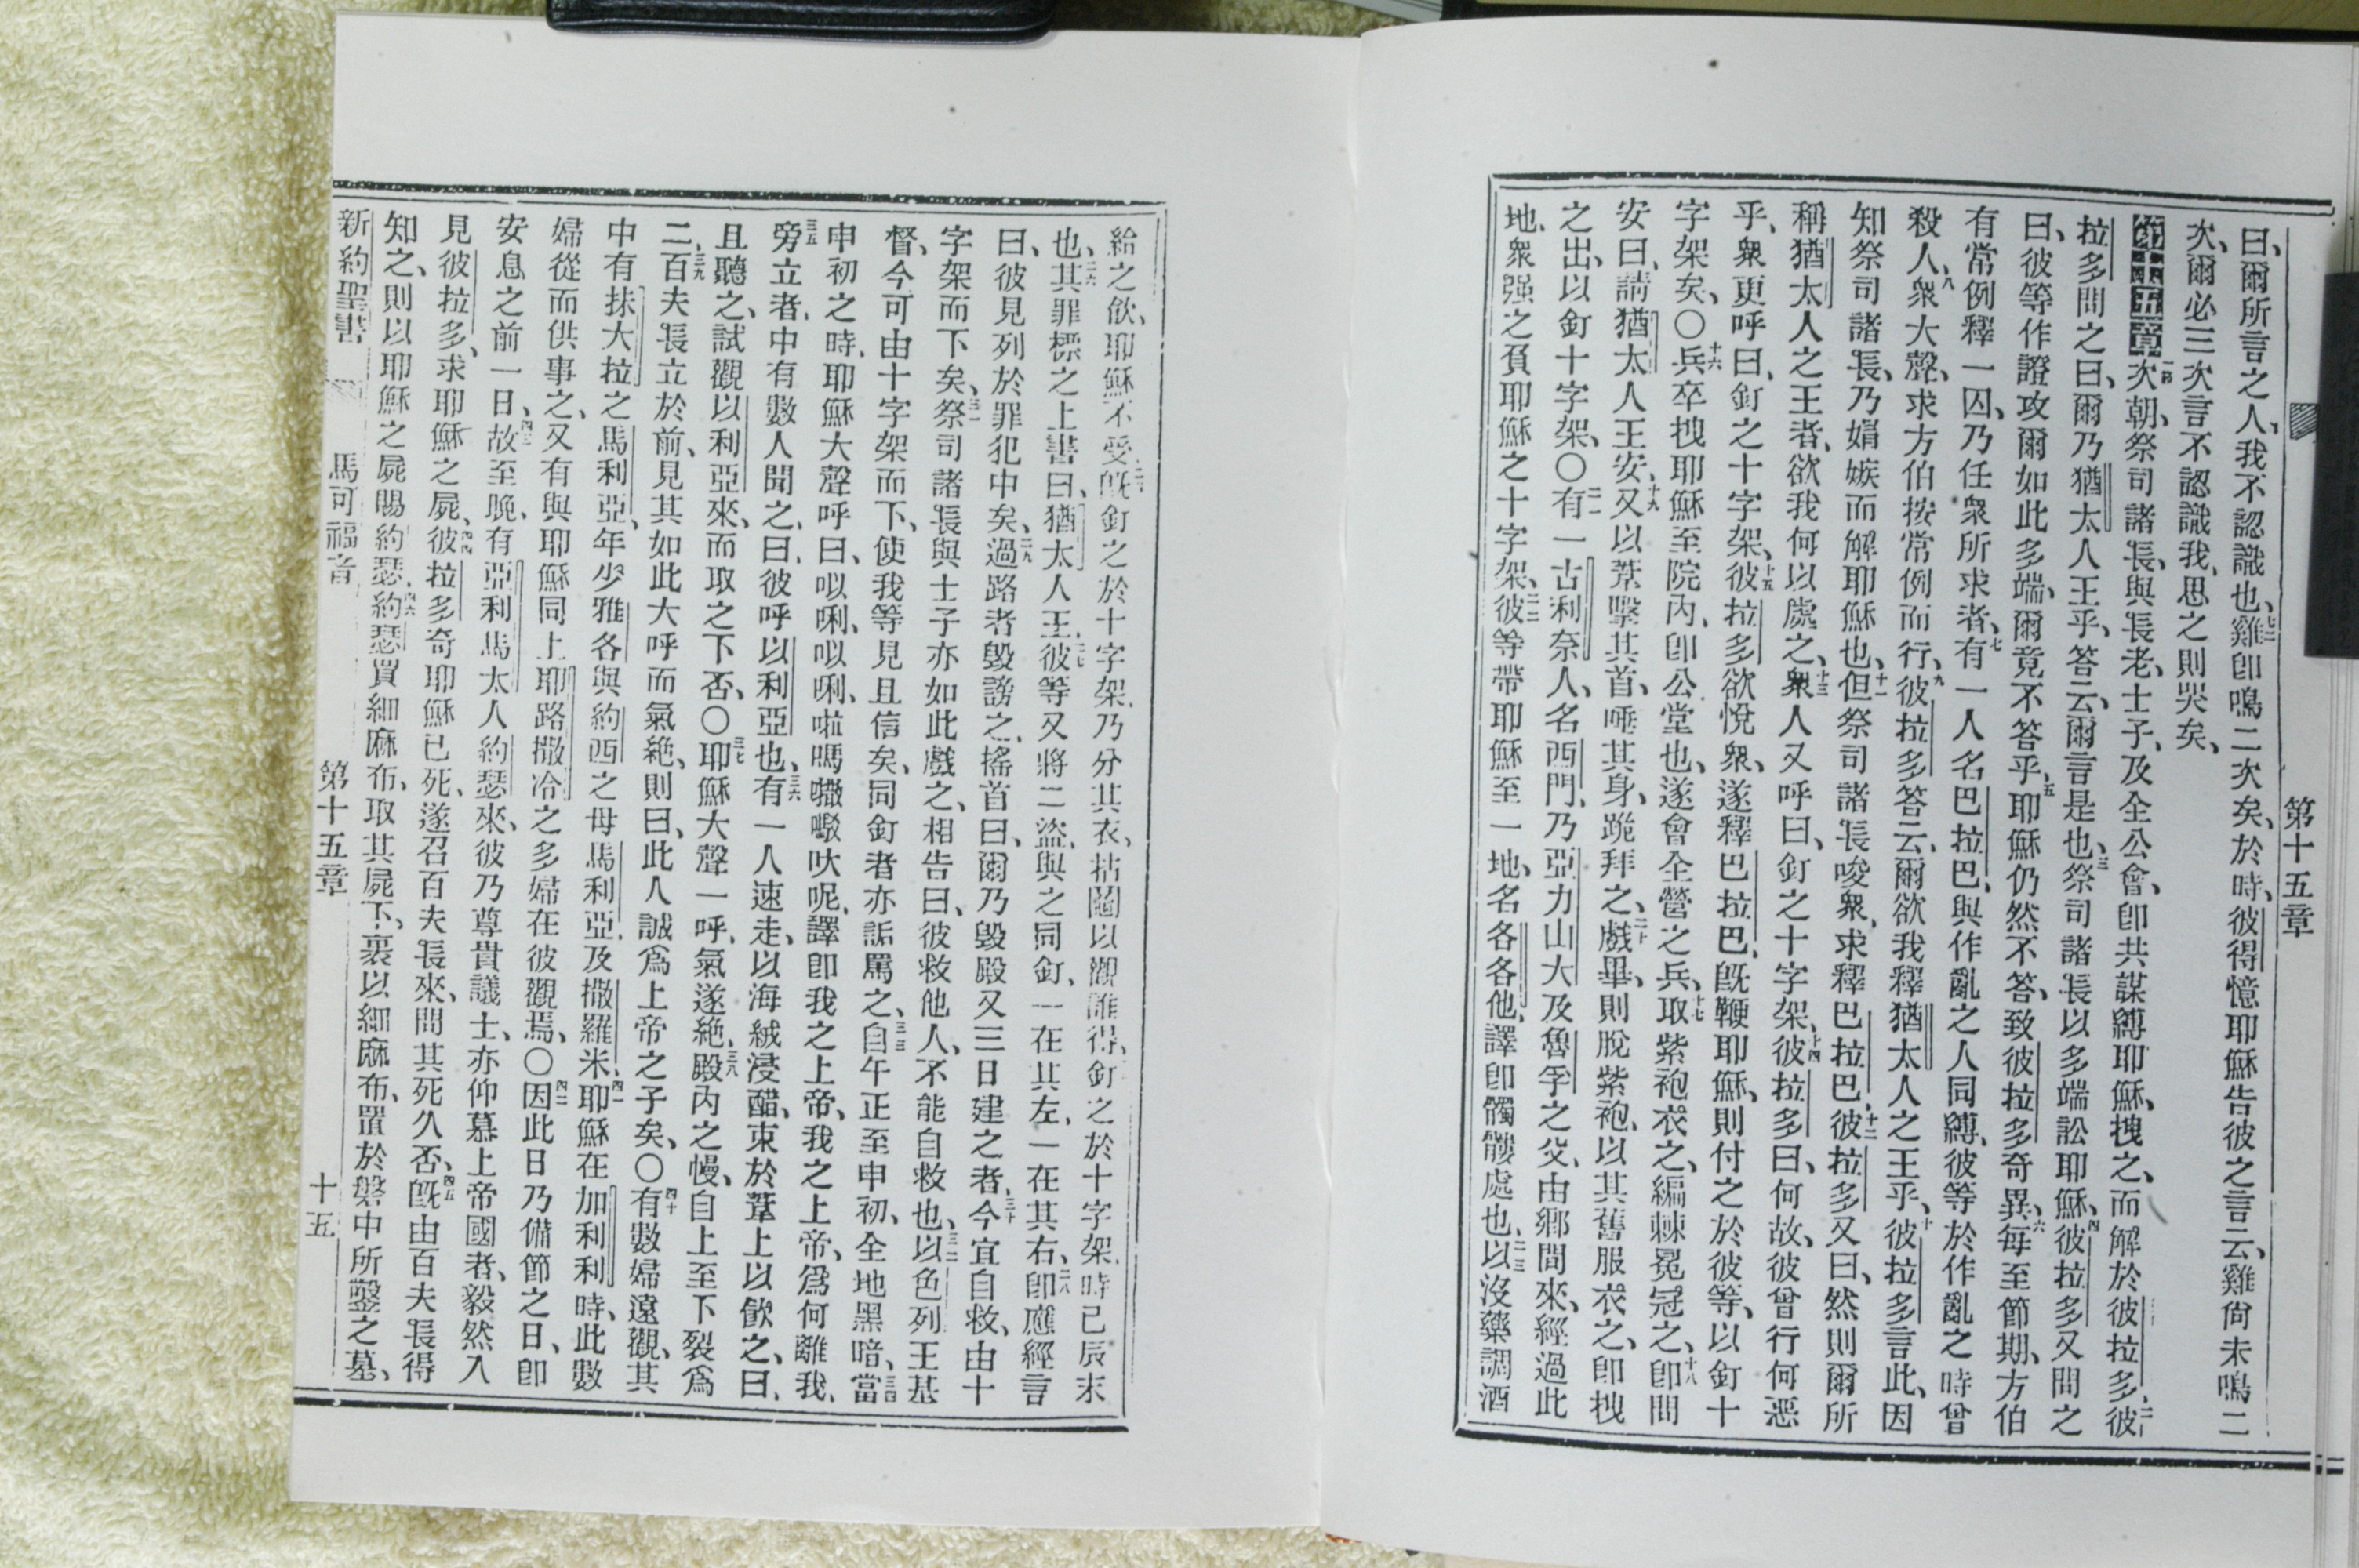 第十五章
曰、爾所言之人、我不認識也、七二雞卽鳴二次矣、於時、彼得憶耶穌告彼之言云、雞尙未鳴二
次、爾必三次言不認識我、思之則哭矣、
第十五章 一節次朝、祭司諸長、與長老、士子、及全公會、卽共謀縛耶穌、拽之、而解於彼拉多、二彼
拉多問之曰、爾乃猶太人王乎、答云、爾言是也、三祭司諸長以多端訟耶穌、四彼拉多又問之
曰、彼等作證攻爾如此多端、爾竟不答乎、五耶穌仍然不答、致彼拉多奇異、六每至節期、方伯
有常例釋一囚、乃任衆所求者、七有一人名巴拉巴、與作亂之人同縛、彼等於作亂之時曾
殺人、八衆大聲、求方伯按常例而行、九彼拉多答云、爾欲我釋猶太人之王乎、十彼拉多言此、因
知祭司諸長、乃娼嫉而解耶穌也、十一但祭司諸長唆衆、求釋巴拉巴、十二彼拉多又曰、然則爾所
稱猶太人之王者、欲我何以處之、十三衆人又呼曰、釘之十字架、十四彼拉多曰、何故、彼曾行何惡
乎、衆更呼曰、釘之十字架、十五彼拉多欲悅衆、遂釋巴拉巴、旣鞭耶穌、則付之於彼等、以釘十
字架矣、〇十六兵卒拽耶穌至院內、卽公堂也、遂會全營之兵、十七取紫袍衣之、編棘冕冠之、十八卽問
安曰、請猶太人王安、十九又以葦擊其首、唾其身、跪拜之、二十戲畢、則脫紫袍、以其舊服衣之、卽拽
之出、以釘十字架、〇二一有一古利奈人、名西門、乃亞力山大及魯孚之父、由鄉間來、經過此
地、衆强之負耶穌之十字架、二二彼等帶耶穌至一地、名各各他、譯卽髑髏處也、二三以沒藥調酒
給之飮、耶穌不受、旣釘之於十字架、乃分其衣、拈鬮以觀誰得、釘之於十字架、時已辰末
也、二六其罪標之上書曰、猶太人王、二七彼等又將二盜、與之同釘、一在其左、一在其右、二八卽應經言
曰、彼見列於罪犯中矣、二九過路者毀謗之、搖首曰、爾乃毀殿又三日建之者、三十今宜自救、由十
字架而下矣、三一祭司諸長與士子亦如此戲之、相告曰、彼救他人、不能自救也、三二以色列王基
督、今可由十字架而下、使我等見且信矣、同釘者亦詬罵之、三三自午正至申初、全地黑暗、三四當
申初之時、耶穌大聲呼曰、㕥唎、㕥唎、啦嗎㘔嚸吠呢、譯卽我之上帝、我之上帝、爲何離我、
三五旁立者、中有數人聞之、曰、彼呼以利亞也、三六有一人速走、以海絨浸醋、束於葦上以飮之、曰、
且聽之、試觀以利亞來、而取之下否、〇三七耶穌大聲一呼、氣遂絕、三八殿內之幔、自上至下裂爲
二、三九百夫長立於前、見其如此大呼而氣絕、則曰、此人誠爲上帝之子矣、〇四十有數婦遠觀、其
中有抹大拉之馬利亞、年少雅各與約西之母馬利亞、及撒羅米、四一耶穌在加利利時、此數
婦從而供事之、又有與耶穌同上耶路撒冷之多婦在彼觀焉、〇四二因此日乃備節之日、卽
安息之前一日、故至晚、四三有亞利馬太人約瑟來、彼乃尊貴議士、亦仰慕上帝國者、毅然入
見彼拉多、求耶穌之屍、四四彼拉多奇耶穌已死、遂召百夫長來、問其死久否、四五旣由百夫長得
知之、則以耶穌之屍賜約瑟、四六約瑟買細麻布、取其屍下、裹以細麻布、置於磐中所鑿之墓、
新約聖書 馬可福音 第十五章 十五